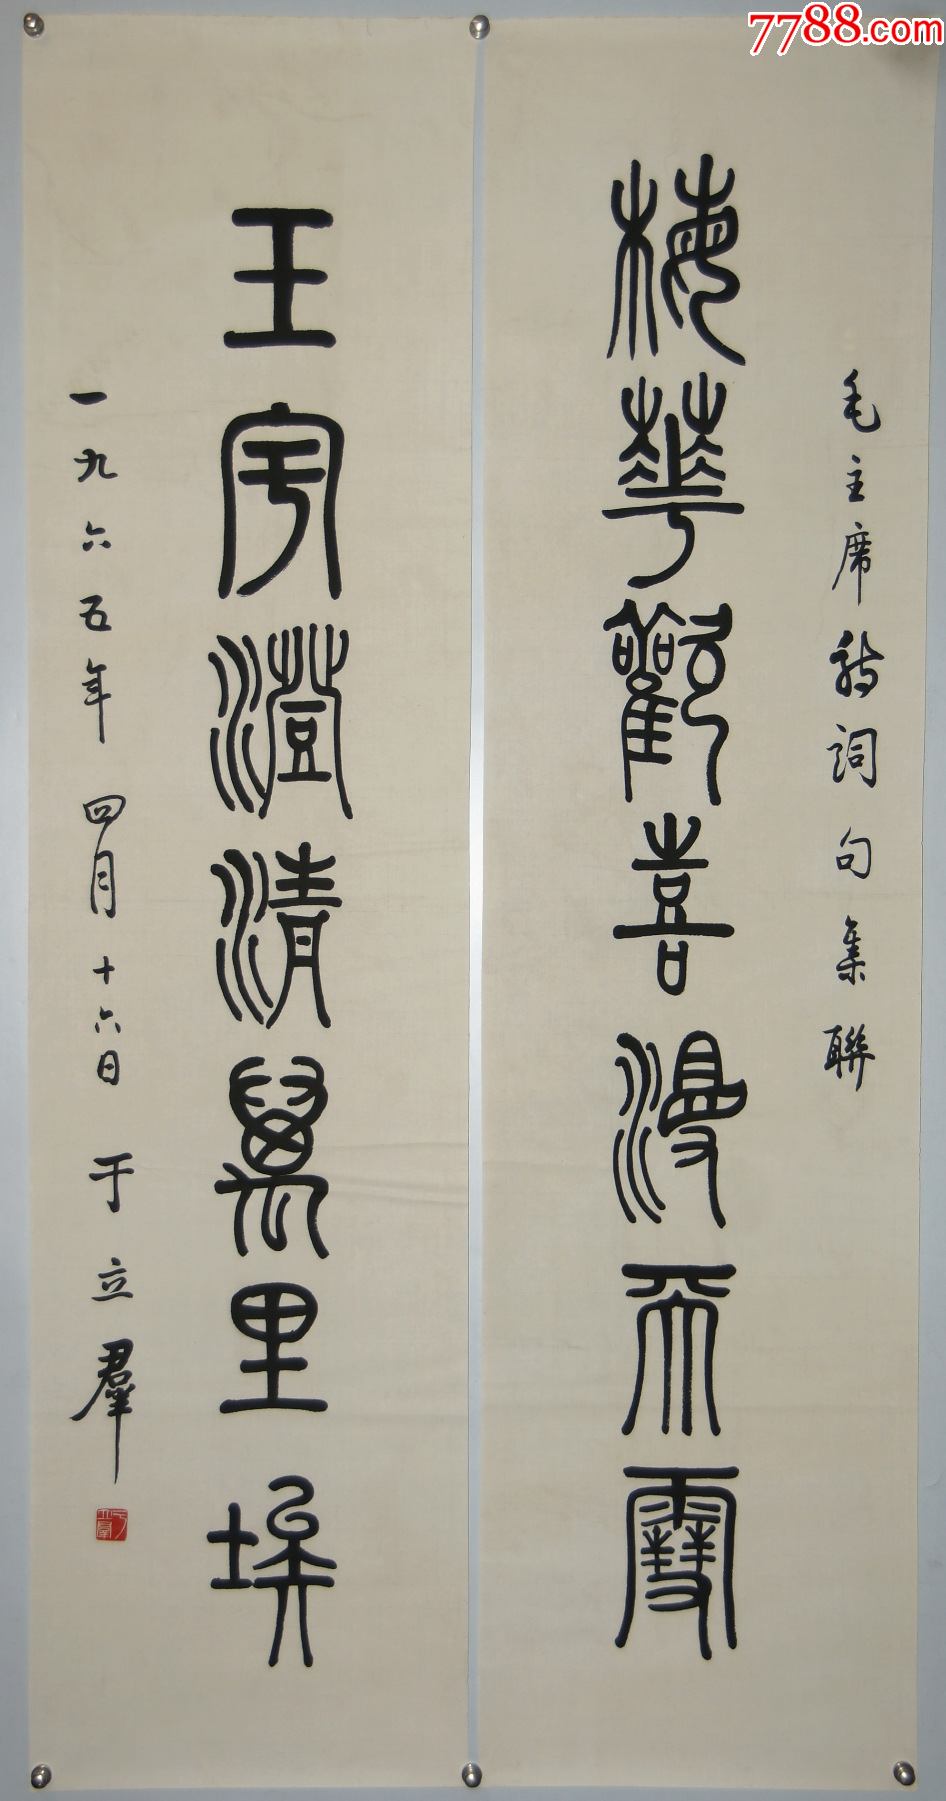 7788.com
毛主席詩詞句集聯
梅華歡喜漫天雪
玉宇澄清萬里埃
一九六五年四月十六日于立羣